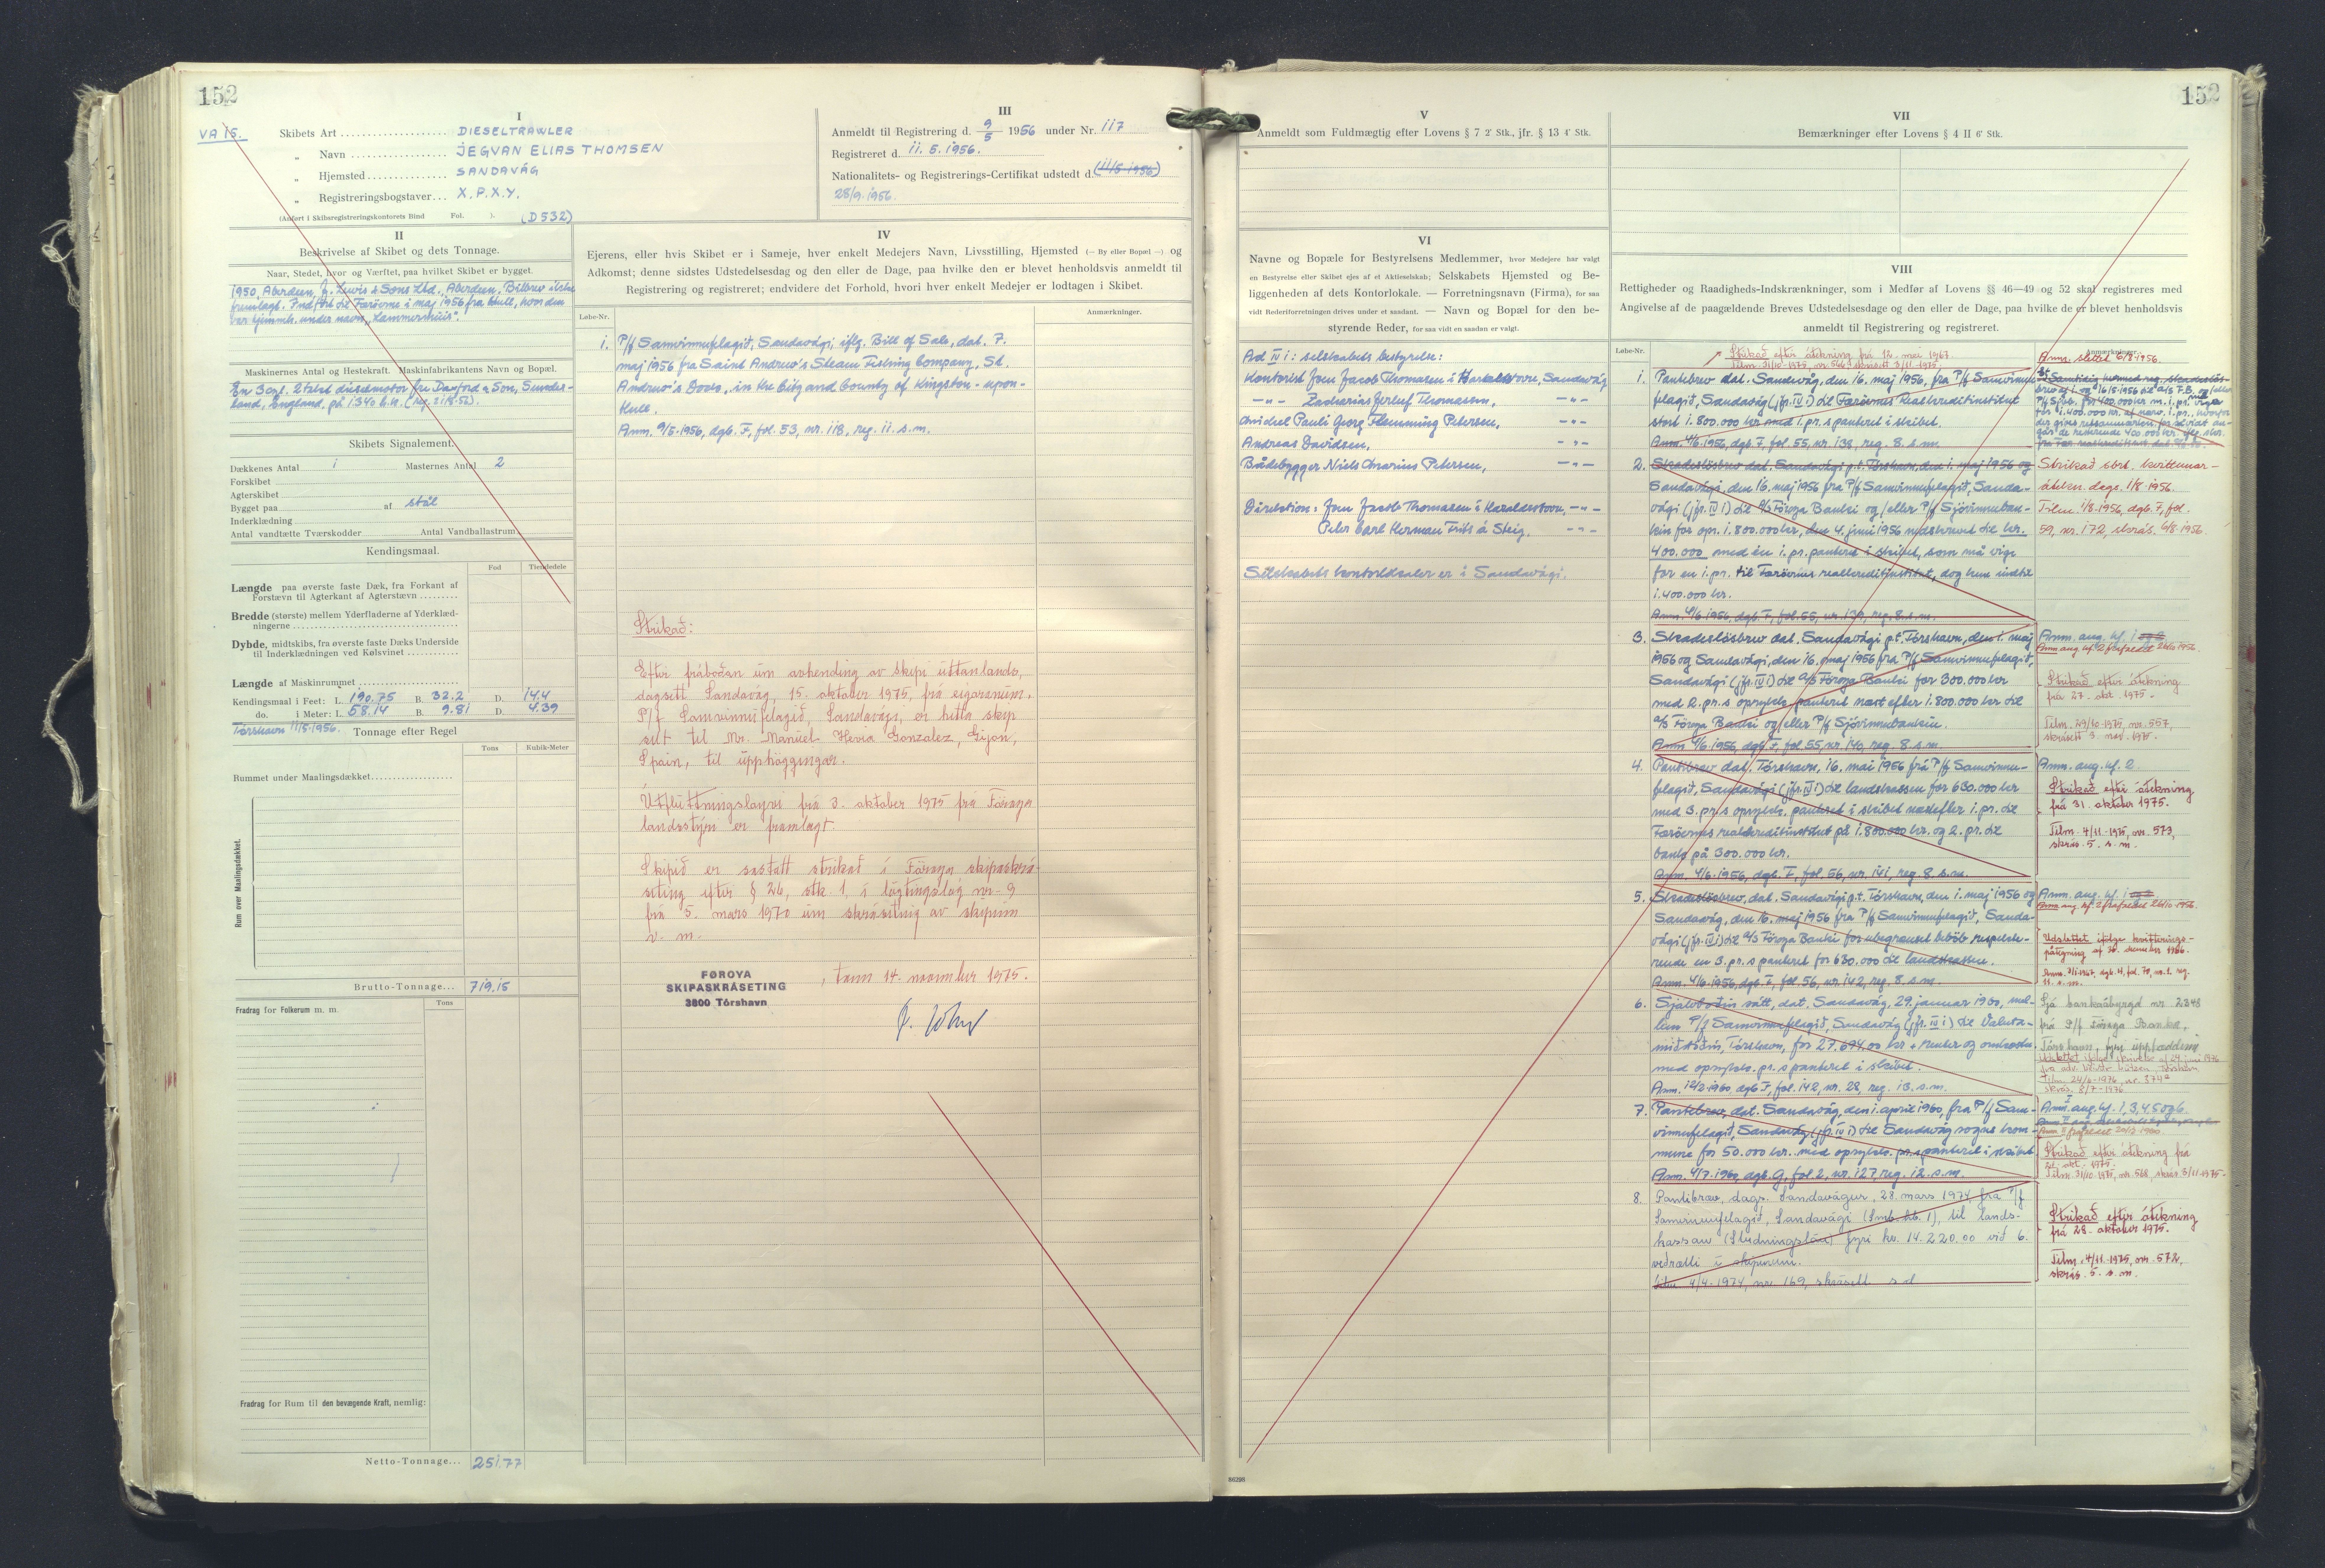 152
VA 15.
I
Skibets Art DIESELTRAWLER
„ Navn JEGVAN ELIAS THOMSEN
„ Hjemsted SANDAVÁG
„ Registreringsbogstaver X.P.X.Y.
(Anført i Skibsregistreringskontorets Bind Fol. ). (D532)
III
Anmeldt til Registrering d. 9/5 1956 under Nr. 117
Registreret d. 11. 5. 1956.
Nationalitets- og Registrerings-Certifikat udstedt d. (11/5-1956)
28/9.1956.
II
Beskrivelse af Skibet og dets Tonnage.
Naar, Stedet, hvor og Værftet, paa hvilket Skibet er bygget.
1950, Aberdeen, J. Lewis & Sons Ltd., Aberdeen. Bilbrev ikke
fremlagt. Indført til Færöerne i maj 1956 fra Hull, hvor den
var hjemmh. under navn „Lammermuir".
Maskinernes Antal og Hestekraft. Maskinfabrikantens Navn og Bopæl.
En 3 cyl. 2 takt dieselmotor fra Doxford & Son, Sunder-
land, England, på 1340 h.k.
Skibets Signalement.
Dækkenes Antal 1 Masternes Antal 2
Forskibet
Agterskibet
Bygget paa af stål
Inderklædning
Antal vandtætte Tværskodder Antal Vandballastrum
Kendingsmaal.
Fod Tiendedele
Længde paa øverste faste Dæk, fra Forkant af
Forstævn til Agterkant af Agterstævn
Bredde (største) mellem Yderfladerne af Yderklæd-
ningerne
Dybde, midtskibs, fra øverste faste Dæks Underside
til Inderklædningen ved Kølsvinet
Længde af Maskinrummet
Kendingsmaal i Feet: L. 190.75 B. 32.2 D. 14.4
do. i Meter: L. 58.14 B. 9.81 D. 4.39
Tórshavn 11/5-1956. Tonnage efter Regel
Tons Kubik-Meter
Rummet under Maalingsdækket
Rum over Maalingsdækket.
Brutto-Tonnage 719,15
Tons
Fradrag for Folkerum m. m.
Fradrag for Rum til den bevægende Kraft, nemlig:
Netto-Tonnage 251.77
IV
Ejerens, eller hvis Skibet er i Sameje, hver enkelt Medejers Navn, Livsstilling, Hjemsted (— By eller Bopæl —) og
Adkomst; denne sidstes Udstedelsesdag og den eller de Dage, paa hvilke den er blevet henholdsvis anmeldt til
Registrering og registreret; endvidere det Forhold, hvori hver enkelt Medejer er lodtagen i Skibet.
Løbe-Nr. Anmerkninger.
1. P/f Samvinnufelagið, Sandavági, iflg. Bill of Sale, dat. 7.
maj 1956 fra Saint Andrew's Steam Fishing Company, St.
Andrew's Dock, in the City and County of Kingston-upon-
Hull.
Anm. 9/5-1956, dgb. F, fol. 53, nr. 118, reg. 11. s.m.
Strikað:
Eftir fráboðan um avhending av skipi uttanlands,
dagsett Sandavág, 15. oktober 1975, frá eigaranum,
P/f Samvinnufelagið, Sandavági, er hetta skip
selt til Mr. Manuel Hevia Gonzalez, Gijon,
Spain, til upphøggingar.
Útflutningsloyvi frá 3. oktober 1975 frá Føroya
landsstýri er framlagt.
Skipið er sostatt strikað í Føroya skipaskrá-
seting eftir § 26, stk. 1, í løgtingslóg nr. 9
frá 5. mars 1970 um skráseting av skipum
v. m.
FØROYA
SKIPASKRÁSETING
3800 Tórshavn
, tann 14. november 1975.
152
V
Anmeldt som Fuldmægtig efter Lovens § 7 2' Stk., jfr. § 13 4' Stk.
VI
Navne og Bopæle for Bestyrelsens Medlemmer, hvor Medejere har valgt
en Bestyrelse eller Skibet ejes af et Aktieselskab; Selskabets Hjemsted og Be-
liggenheden af dets Kontorlokale. — Forretningsnavn (Firma), for saa
vidt Rederiforretningen drives under et saadant. — Navn og Bopæl for den be-
styrende Reder, for saa vidt en saadan er valgt.
Ad IV 1: selskabets bestyrelse:
Kontorist Jens Jacob Thomassen i Haraldsstovu, Sandavág
—"— Zacharias Thomassen, —"—
Michel Pauli Georg Flemming Petersen, —"—
Andreas Davidsen, —"—
Bådebygger Niels Marius Petersen, —"—
Direktion: Jens Jacob Thomassen i Haraldsstovu, —"—
Peter Carl Herman Frits á Steig, —"—
Selskabets kontorlokaler er i Sandavági.
VII
Bemærkninger efter Lovens § 4 II 6' Stk.
VIII
Rettigheder og Raadigheds-Indskrænkninger, som i Medfør af Lovens §§ 46—49 og 52 skal registreres med
Angivelse af de paagældende Breves Udstedelsesdage og den eller de Dage, paa hvilke de er blevet henholdsvis
anmeldt til Registrering og registreret.
Løbe-Nr. Anmærkninger.
Strikað eftir átekning frá 12. mai 1967.
1. Pantebrev dat. Sandavåg, den 16. maj 1956, fra P/f Samvinnu-
felagið, Sandavág (jfr. IV 1) til Færöernes Realkreditinstitut
stort 1.800.000 kr med 1. pr. s panteret i skibet.
Anm. 4/6.1956, dgb. F, fol. 55, nr. 138, reg. 8. s.m.
2. Skadeslösbrev dat. Sandavági p.t. Tórshavn, den 1. maj 1956 og
Sandavági, den 16. maj 1956 fra P/f Samvinnufelagið, Sanda-
vági (jfr. IV 1) til A/S Föroya Banki og/eller P/f Sjóvinnuban-
kin for opr. 1.800.000 kr, den 4. juni 1956 nedskrevet til kr.
400.000 med én 1. pr. panteret i skibet, som må vige
for en 1. pr. til Færöernes realkreditinstitut, dog kun indtil
1.400.000 kr.
Anm. 4/6.1956, dgb. F, fol. 55, nr. 139, reg. 8. s.m.
Strikað sbrt. kvittunar-
átekn. dags. 1/8-1956.
Tilm. 1/8-1956, dgb. F, fol.
59, nr. 172, skrás. 6/8-1956.
3. Skadeslösbrev dat. Sandavági p.t. Tórshavn, den 1. maj
1956 og Sandavági, den 16. maj 1956 fra P/f Samvinnufelagið,
Sandavági (jfr. IV 1) til A/S Föroya Banki for 300.000 kr
med 2. pr. s oprykk. panteret næst efter 1.800.000 kr til
A/S Föroya Banki og/eller P/f Sjóvinnubankin.
Anm. 4/6.1956, dgb. F, fol. 55, nr. 140, reg. 8. s.m.
Strikað eftir átekning
frá 27. okt. 1975.
Tilm. 29/10-1975, nr. 557,
skrásett 3. nov. 1975.
4. Pantibrev dat. Tórshavn, 16. mai 1956 frá P/f Samvinnu-
felagið, Sandavági (jfr. IV 1) til landskassen for 630.000 kr
med 3. pr. s oprykk. panteret i skibet næstefter 1. pr. til
Færöernes realkreditinstitut på 1.800.000 kr. og 2. pr. til
bank på 300.000 kr.
Anm. 4/6.1956, dgb. F, fol. 56, nr. 141, reg. 8. s.m.
Anm. ang. hf. 2
Strikað eftir átekning
frá 31. oktober 1975.
Tilm. 4/11-1975, nr. 573,
skrás. 5. s.m.
5. Skadeslösbrev, dat. Sandavági p.t. Tórshavn, den 1. maj 1956 og
Sandavág, den 16. maj 1956 fra P/f Samvinnufelagið, Sanda-
vági (jfr. IV 1) til A/S Föroya Banki for ubegrænset beløb respekte-
rende en 3. pr. s panteret for 630.000 til landskassen.
Anm. 4/6.1956, dgb. F, fol. 56, nr. 142, reg. 8. s.m.
6. Sjálvboðin sátt, dat. Sandavág, 29. januar 1960, mel-
lem P/f Samvinnufelagið, Sandavág (jfr. IV 1) til Valuta-
miðstöðin, Tórshavn, for 27.694,00 kr + renter og omkostn.
med oprykk. pr. s panteret i skibet.
Anm. 12/2-1960, dgb. F, fol. 142, nr. 28, reg. 13. s.m.
Sjá bankaábyrgd nr. 2848
frá P/f Føroya Banka,
7. Pantebrev, dat. Sandavág, den 1. april 1960, fra P/f Sam-
vinnufelagið, Sandavág (jfr. IV 1) til Sandavág sogns kom-
mune for 50.000 kr. med oprykk. pr. s panteret i skibet
Anm. 4/7.1960, dgb. G, fol. 2, nr. 127, reg. 12. s.m.
Anm. ang. hf. 1, 3, 4, 5 og 6.
Strikað eftir átekning frá
Tilm. 31/10-1975, nr. 568, skrás. 3/11-1975.
8. Pantibræv, dags. Sandavágur, 28. mars 1974, frá P/f
Samvinnufelagið, Sandavági (Smb. lb. 1), til lands-
kassan (Studningslán) fyri kr. 14.220.00 við 6.
veðrætti í skipinum.
Tilm. 4/4-1974, nr. 169, skrásett s.d.
Strikað eftir átekning
frá 28. oktober 1975.
Tilm. 4/11-1975, nr. 572,
skrás. 5. s.m.
86298